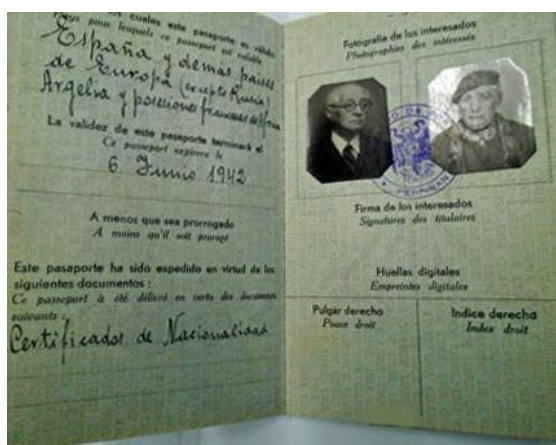 los cuales este pasaporte es válido
pays pour lesquels ce passeport est valable
España y demas paises
de Europa (excepto Rusia)
Argelia y posesiones francesas de Africa
La validez de este pasaporte terminará el
Ce passeport expirera le
6 Junio 1942
A menos que sea prorrogado
A moins qu'il soit prorogé
Este pasaporte ha sido expedido en virtud de los
siguientes documentos :
Ce passeport à été délivré en vertu des documents
suivants :
Certificados de Nacionalidad
Fotografía de los interesados
Photographies des intéressés
PERPIÑAN
Firma de los interesados
Signatures des titulaires
Huellas digitales
Empreintes digitales
Pulgar derecho
Pouce droit
Indice derecha
Index droit